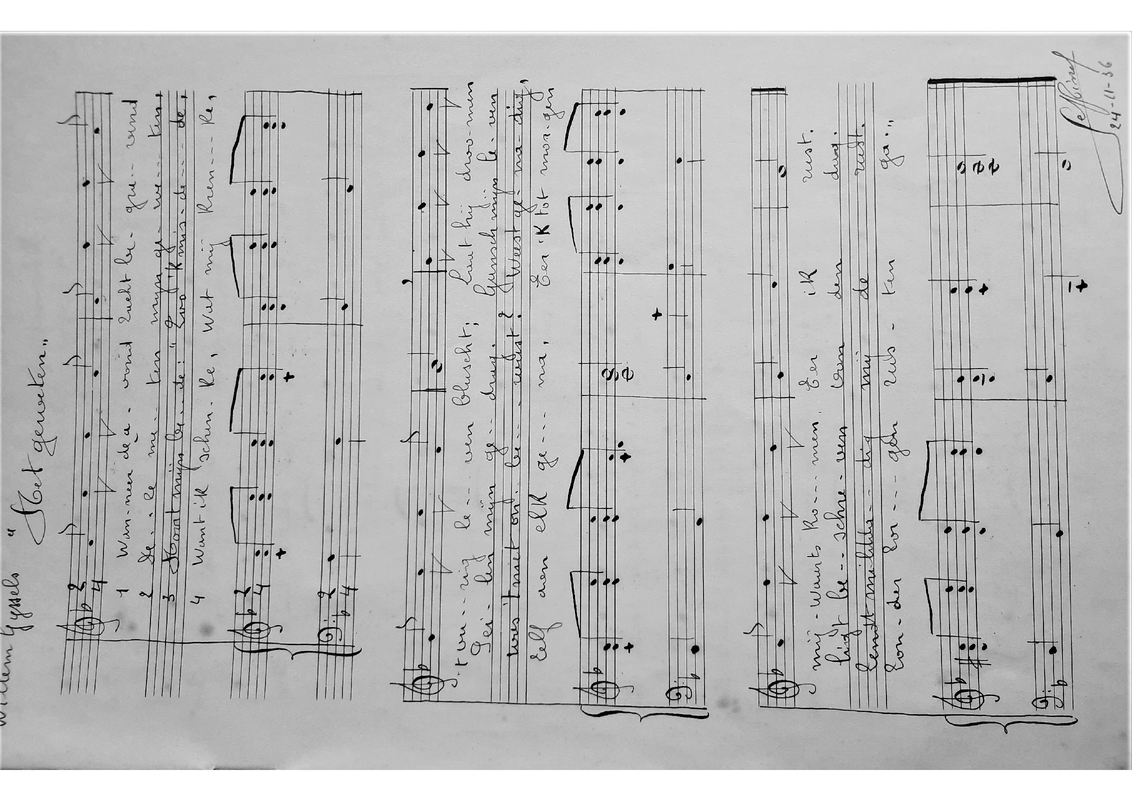 Willem Gyssels "Het geweten"
1 Wan-neer de a-vond zucht be-gre-vend
2 De-ze me-ten mijn ge-we-ten,
3 Hoort mijn be-de: "zoo 'k mis-de-de,
4 Want ik schen-ke, Wat mij kren-ke,
't on-rig le-ven bluscht; Luut hij droo-men
Gei-len mijn ge-drag. Gansch mijn le-ven
was 't niet on-be-wust? Weest ge-na-dig,
zelf aen elk ge-na, Eer 'k tot mor-gen
mij-waerts ko-men, Eer ik rust.
ligt be-schre-ven Van den dag.
Zendt mildda-dig mij de rust.
zon-der zor-gen rus-ten ga.,,
24-11-36